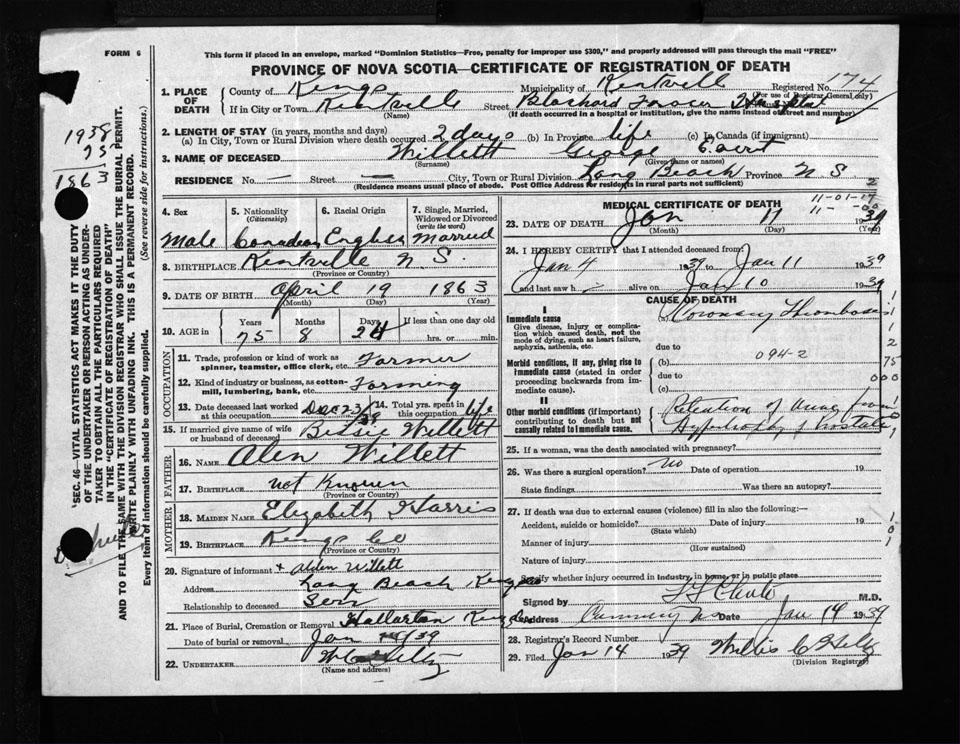 FORM 6
This form if placed in an envelope, marked "Dominion Statistics—Free, penalty for improper use $300," and properly addressed will pass through the mail "FREE"
PROVINCE OF NOVA SCOTIA—CERTIFICATE OF REGISTRATION OF DEATH
1. PLACE OF DEATH
County of Kings Municipality of Kentville Registered No. 174
(For use of Registrar General only)
If in City or Town Kentville Street Blanchard Fraser Hospital
(Name) (If death occurred in a hospital or institution, give the name instead of street and number)
2. LENGTH OF STAY (in years, months and days)
(a) In City, Town or Rural Division where death occurred 2 days (b) In Province life (c) In Canada (if immigrant)
3. NAME OF DECEASED Willett George
(Surname) (Given name or names)
RESIDENCE No. — Street — City, Town or Rural Division Long Beach Province N S
(Residence means usual place of abode. Post Office Address for residents in rural parts not sufficient)
4. Sex
Male
5. Nationality (Citizenship)
Canadian
6. Racial Origin
English
7. Single, Married, Widowed or Divorced (write the word)
Married
8. BIRTHPLACE Kentville N. S.
(Province or Country)
9. DATE OF BIRTH April 19 1863
(Month) (Day) (Year)
10. AGE in
Years Months Days If less than one day old
75 8 24 hrs. or min.
OCCUPATION
11. Trade, profession or kind of work as spinner, teamster, office clerk, etc. Farmer
12. Kind of industry or business, as cotton-mill, lumbering, bank, etc. Farming
13. Date deceased last worked at this occupation Dec 23/38
14. Total yrs. spent in this occupation life
15. If married give name of wife or husband of deceased Willett
FATHER
16. NAME Willett
17. BIRTHPLACE not Known
(Province or Country)
MOTHER
18. MAIDEN NAME Elizabeth Harris
19. BIRTHPLACE Kings Co
(Province or Country)
20. Signature of informant + Alden Willett
Address Long Beach Kings Co
Relationship to deceased Son
21. Place of Burial, Cremation or Removal Kings
Date of burial or removal Jan /39
22. UNDERTAKER
(Name and address)
MEDICAL CERTIFICATE OF DEATH
11-01-
11-
23. DATE OF DEATH Jan 11 1939
(Month) (Day) (Year)
24. I HEREBY CERTIFY that I attended deceased from:
Jan 4 1939 to Jan 11 1939
and last saw h alive on Jan 10 1939
CAUSE OF DEATH
I
Immediate cause
Give disease, injury or complication which caused death, not the mode of dying, such as heart failure, asphyxia, asthenia, etc.
(a) Coronary Thrombosis
due to
Morbid conditions, if any, giving rise to immediate cause (stated in order proceeding backwards from immediate cause).
(b) 094-2
due to
(c)
II
Other morbid conditions (if important) contributing to death but not causally related to immediate cause.
Retention of Urine from
Hypertrophy of Prostate
25. If a woman, was the death associated with pregnancy?
26. Was there a surgical operation? No Date of operation 19
State findings Was there an autopsy?
27. If death was due to external causes (violence) fill in also the following:—
Accident, suicide or homicide? Date of injury 19
(State which)
Manner of injury
(How sustained)
Nature of injury
Specify whether injury occurred in industry, in home, or in public place
Signed by M.D.
Address Canning NS Date Jan 14 1939
28. Registrar's Record Number
29. Filed Jan 14 1939
(Division Registrar)
1938
75
1863
"SEC. 46—VITAL STATISTICS ACT MAKES IT THE DUTY
OF THE UNDERTAKER OR PERSON ACTING AS UNDER-
TAKER TO OBTAIN ALL THE PARTICULARS REQUIRED
IN THE "CERTIFICATE OF REGISTRATION OF DEATH"
AND TO FILE THE SAME WITH THE DIVISION REGISTRAR WHO SHALL ISSUE THE BURIAL PERMIT.
WRITE PLAINLY WITH UNFADING INK. THIS IS A PERMANENT RECORD.
Every item of information should be carefully supplied. (See reverse side for instructions.)